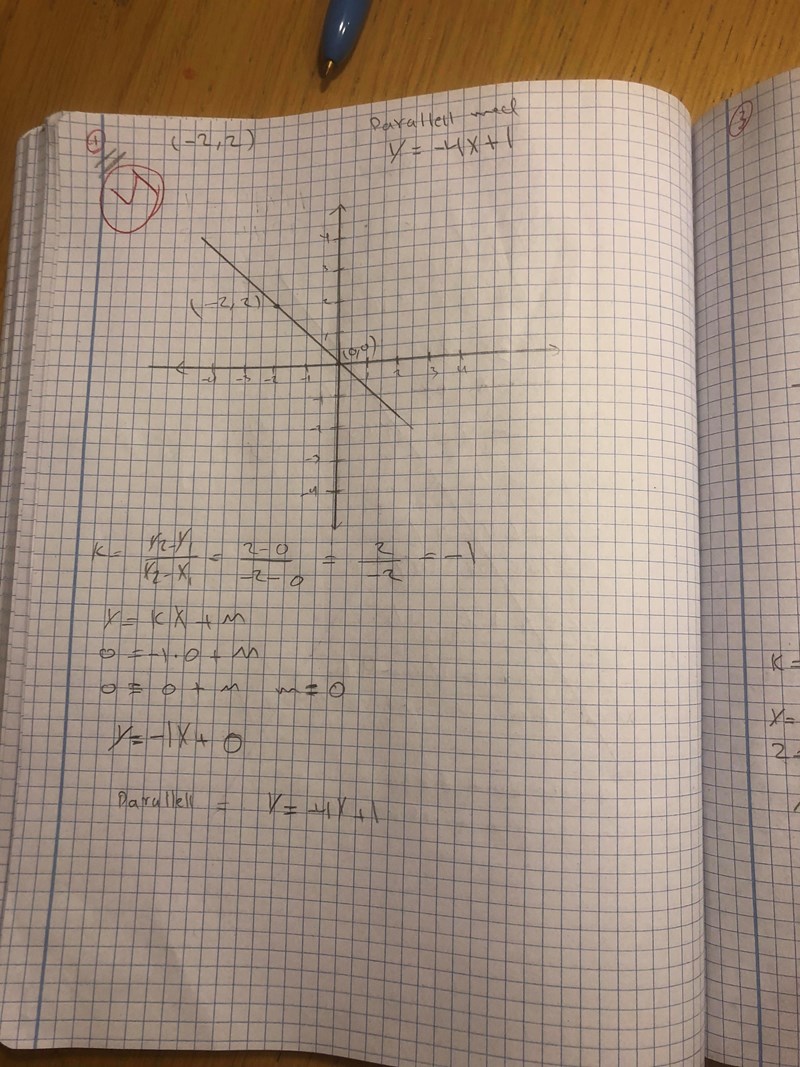 4
(-2,2)
Parallell med
y = -4x+1
3
4
3
2
1
(-2,2)
(0,0)
-4 -3 -2 -1 1 2 3 4
-1
-2
-3
-4
K = y2-y1/x2-x1 = 2-0/-2-0 = 2/-2 = -1
y = kx + m
0 = -1·0 + m
0 = 0 + m m = 0
y = -1x + 0
Parallell = y = -4x+1
K=
y=
2=